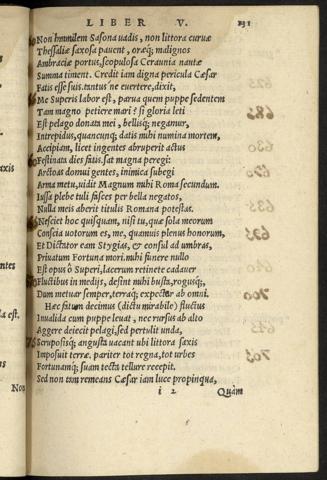 LIBER V. 131
Non humilem Sasona vadis, non littora curuæ
Thessaliæ saxosa pauent, oræq; malignos
Ambraciæ portus, scopulosa Ceraunia nautæ
Summa timent. Credit iam digna pericula Cæsar
Fatis esse suis. tantus'ne euertere, dixit,
Me Superis labor est, parua quem puppe sedentem
Tam magno petiere mari? si gloria leti
Est pelago donata mei, bellisq; negamur,
Intrepidus, quancunq; datis mihi numina mortem,
Accipiam, licet ingentes abruperit actus
Festinata dies fatis. sat magna peregi
Arctoas domui gentes, inimica subegi
Arma metu, uidit Magnum mihi Roma secundum.
Iussa plebe tuli fasces per bella negatos,
Nulla meis aberit titulis Romana potestas.
Nesciet hoc quisquam, nisi tu, quæ sola meorum
Conscia uotorum es, me, quamuis plenus honorum,
Et Dictator eam Stygias, & consul ad umbras,
Priuatum Fortuna mori. mihi funere nullo
Est opus ô Superi, lacerum retinete cadauer
Fluctibus in medijs, desint mihi busta, rogusq;,
Dum metuar semper, terraq; expecter ab omni.
Hæc fatum decimus (dictu mirabile) fluctus
Inualida cum puppe leuat, nec rursus ab alto
Aggere deiecit pelagi, sed pertulit unda,
Scruposisq; angusta uacant ubi littora saxis
Imposuit terræ. pariter tot regna, tot urbes
Fortunamq; suam tacta tellure recepit.
Sed non tam remeans Cæsar iam luce propinqua,
i 2 Quàm
axis
la est.
ntes
Non